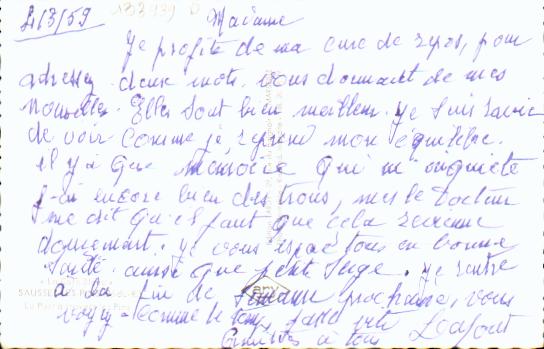 4/3/59
Madame
Je profite de ma cure de repos, pour
adresser deux mots vous donnant de mes
nouvelles. Elles sont bien meilleur. Je suis ravie
de voir comme je reprend mon équilibre.
il y a que mémoire qui m'inquiète
j'ai encore bien des trous, mes le Docteur
me dit qu'il faut que cela revienne
doucement. Je vous espère tous en bonne
santé ainsi que petit Serge. Je rentre
a la fin de semaine prochaine, vous
voyez comme le temps passe vite
Amitiés à tous